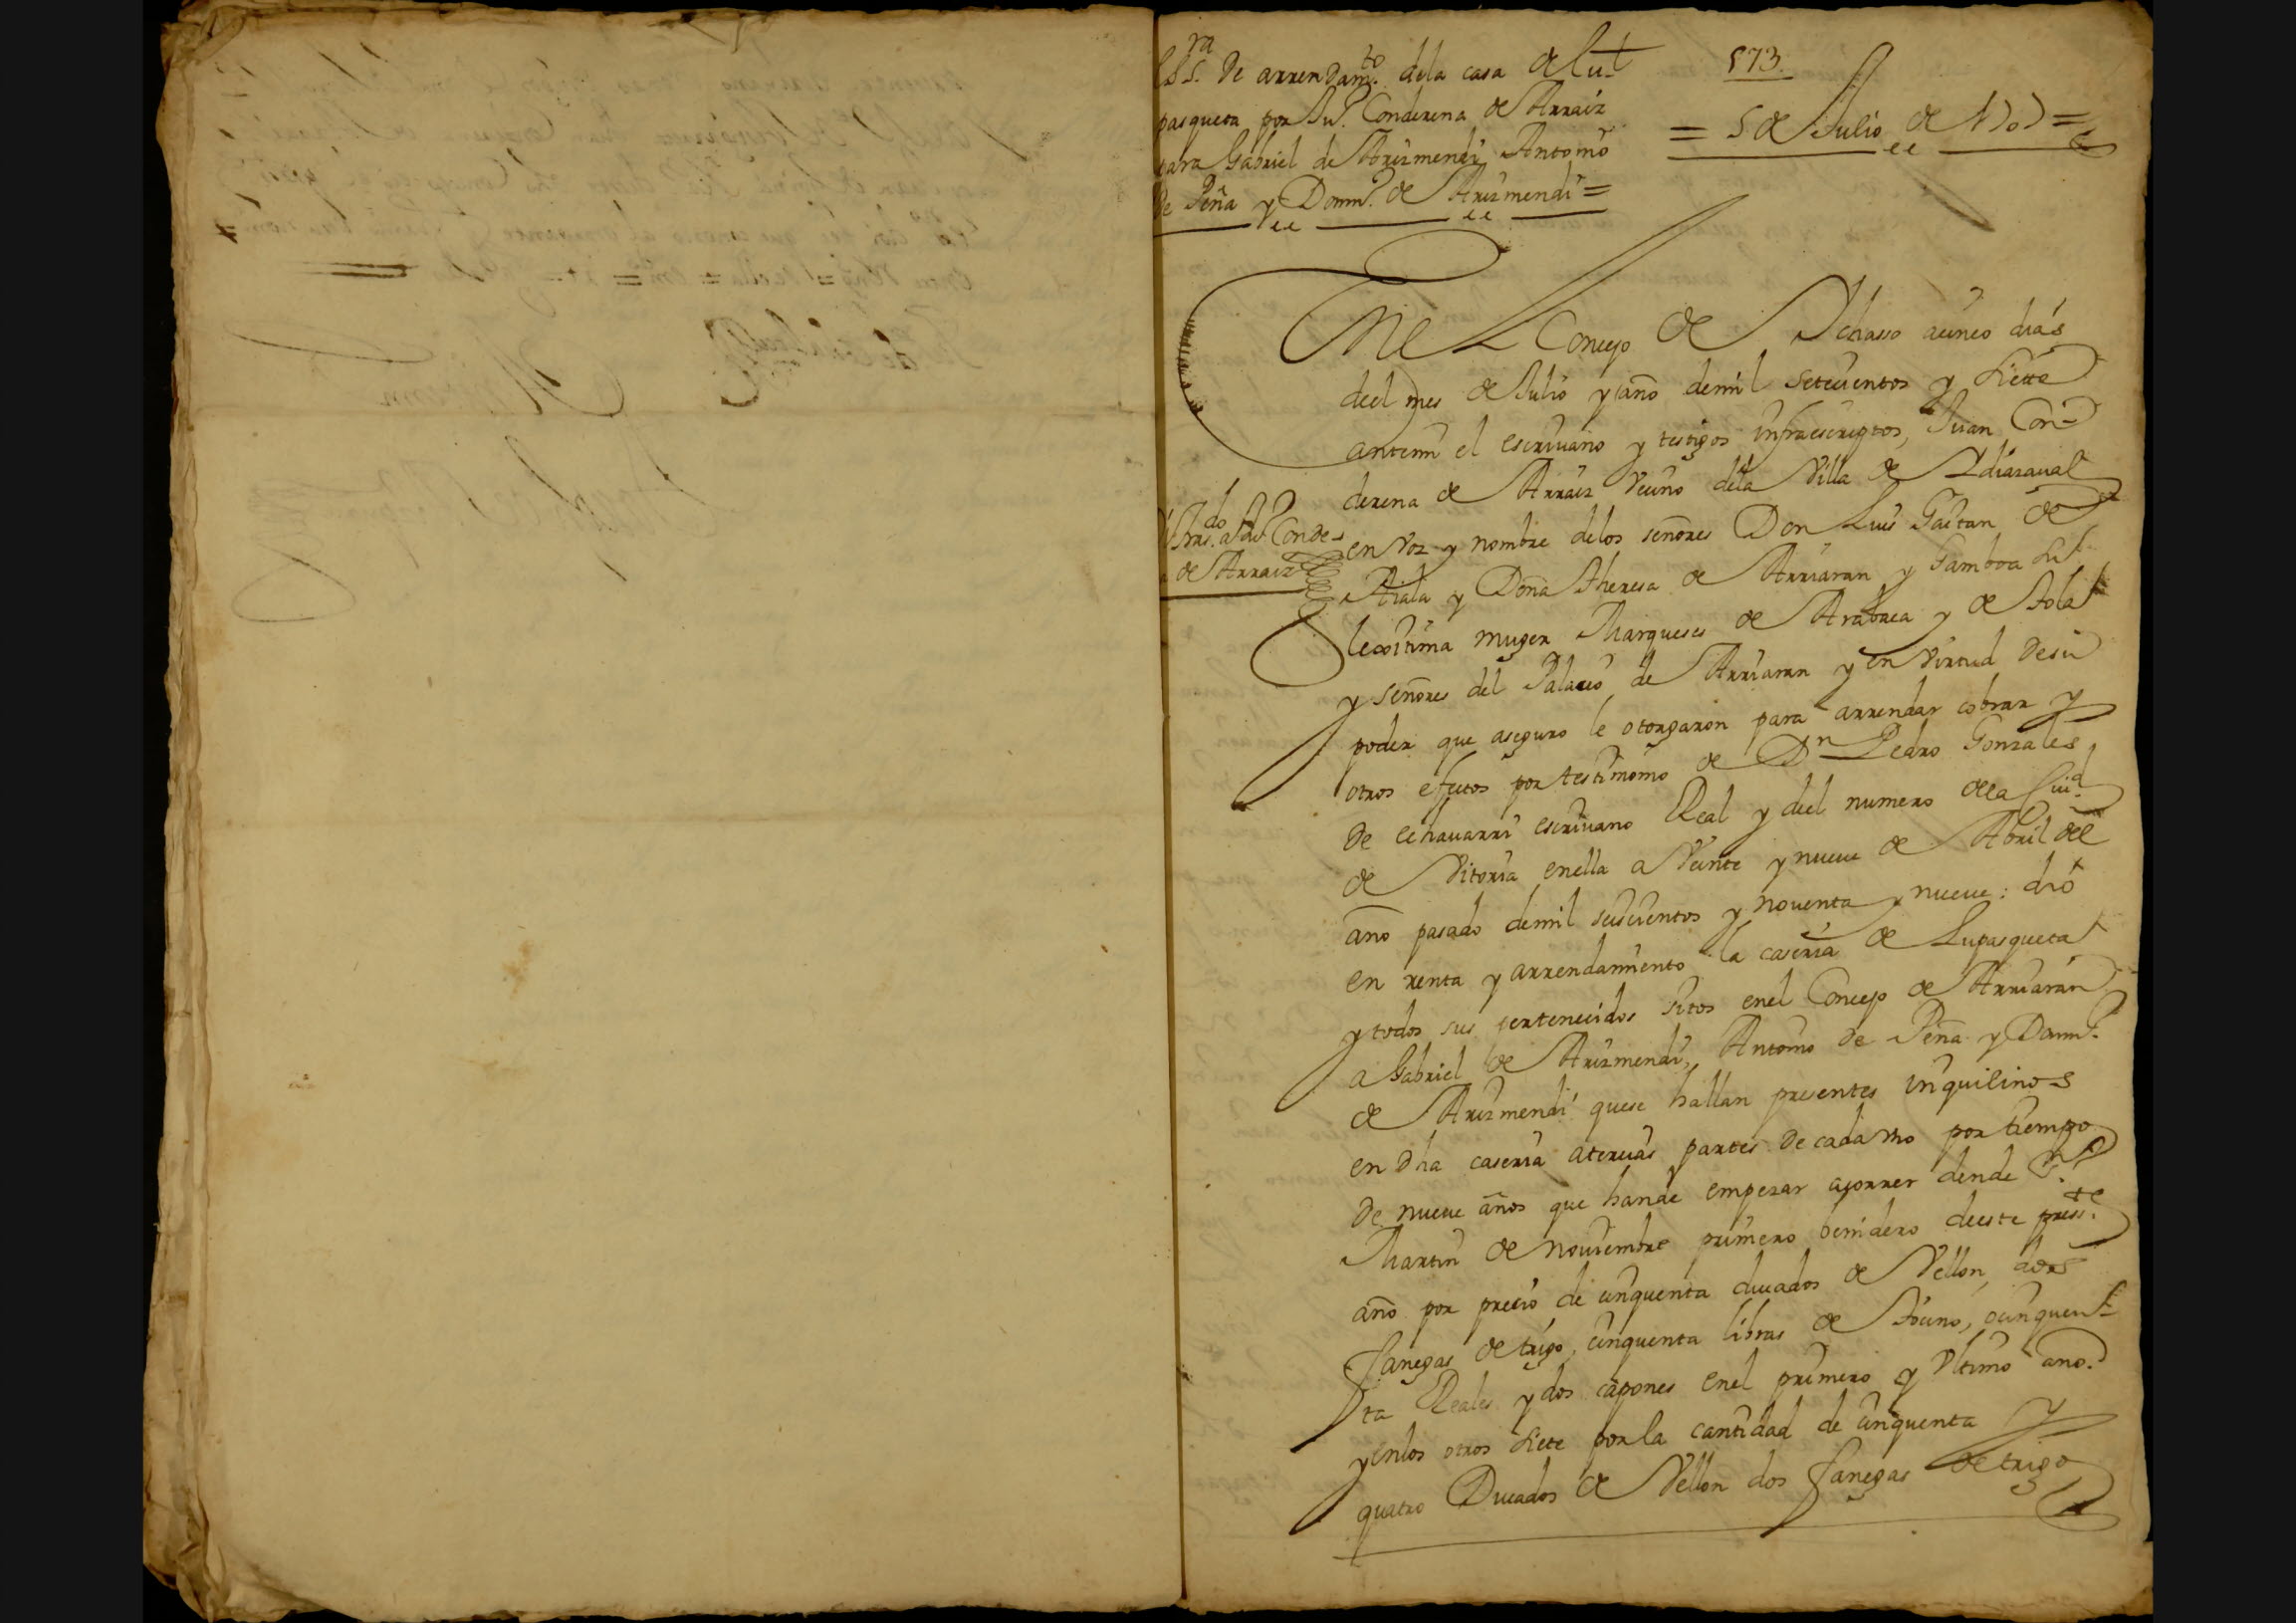 ess.ra de arrendam.to dela casa de Lu-
pasqueta por Ju.o Conderena de Arraiz
para Gabriel de Arizmendi Antonio
de Peña y Domin.o de Arizmendi =
573.
= 5 de Julio de 1707 =
En el Concejo de Ychasso acinco dias
deel mes de Julio y año demil setecientos y siette
antemi el escrivano y testigos infraescriptos, Juan Con-
derena de Arraiz vecino dela Villa de Ydiazaval
en voz y nombre delos señores Don Luis Gaitan de
Aiala y Doña Theresa de Arriaran y Gamboa su
lexitima muger Marqueses de Aravaca y de Tola
y señores del Palacio de Arriaran y en virtud desu
poder que aseguro le otorgaron para arrendar cobrar y
otros efectos por testimonio de Dn Pedro Gonzales
de echavarri escrivano Real y deel numero dela Ciud.
de Vitoria enella a Veinte y nueve de Abril dee
año pasado demil seiscientos y noventa y nueve: dió
en renta y arrendamiento la caseria de Lupasqueta
y todos sus pertenecidos sitos enel Concejo de Arriaran
a Gabriel de Arizmendi, Antonio de Peña y Domin.o
de Arizmendi quese hallan presentes inquilinos
en dha caseria atercias partes de cada vno por tiempo
de nueve años que hande empezar acorrer dende Sn
Martin de noviembre primero benidero deeste press.te
año por precio de cinquenta ducados de Vellon, dos
fanegas de trigo, cinquenta libras de tocino, ocinquen-
ta Reales y dos capones enel primero y vltimo año.
y enlos otros siete por la cantidad de cinquenta y
quatro Ducados de Vellon dos fanegas de trigo